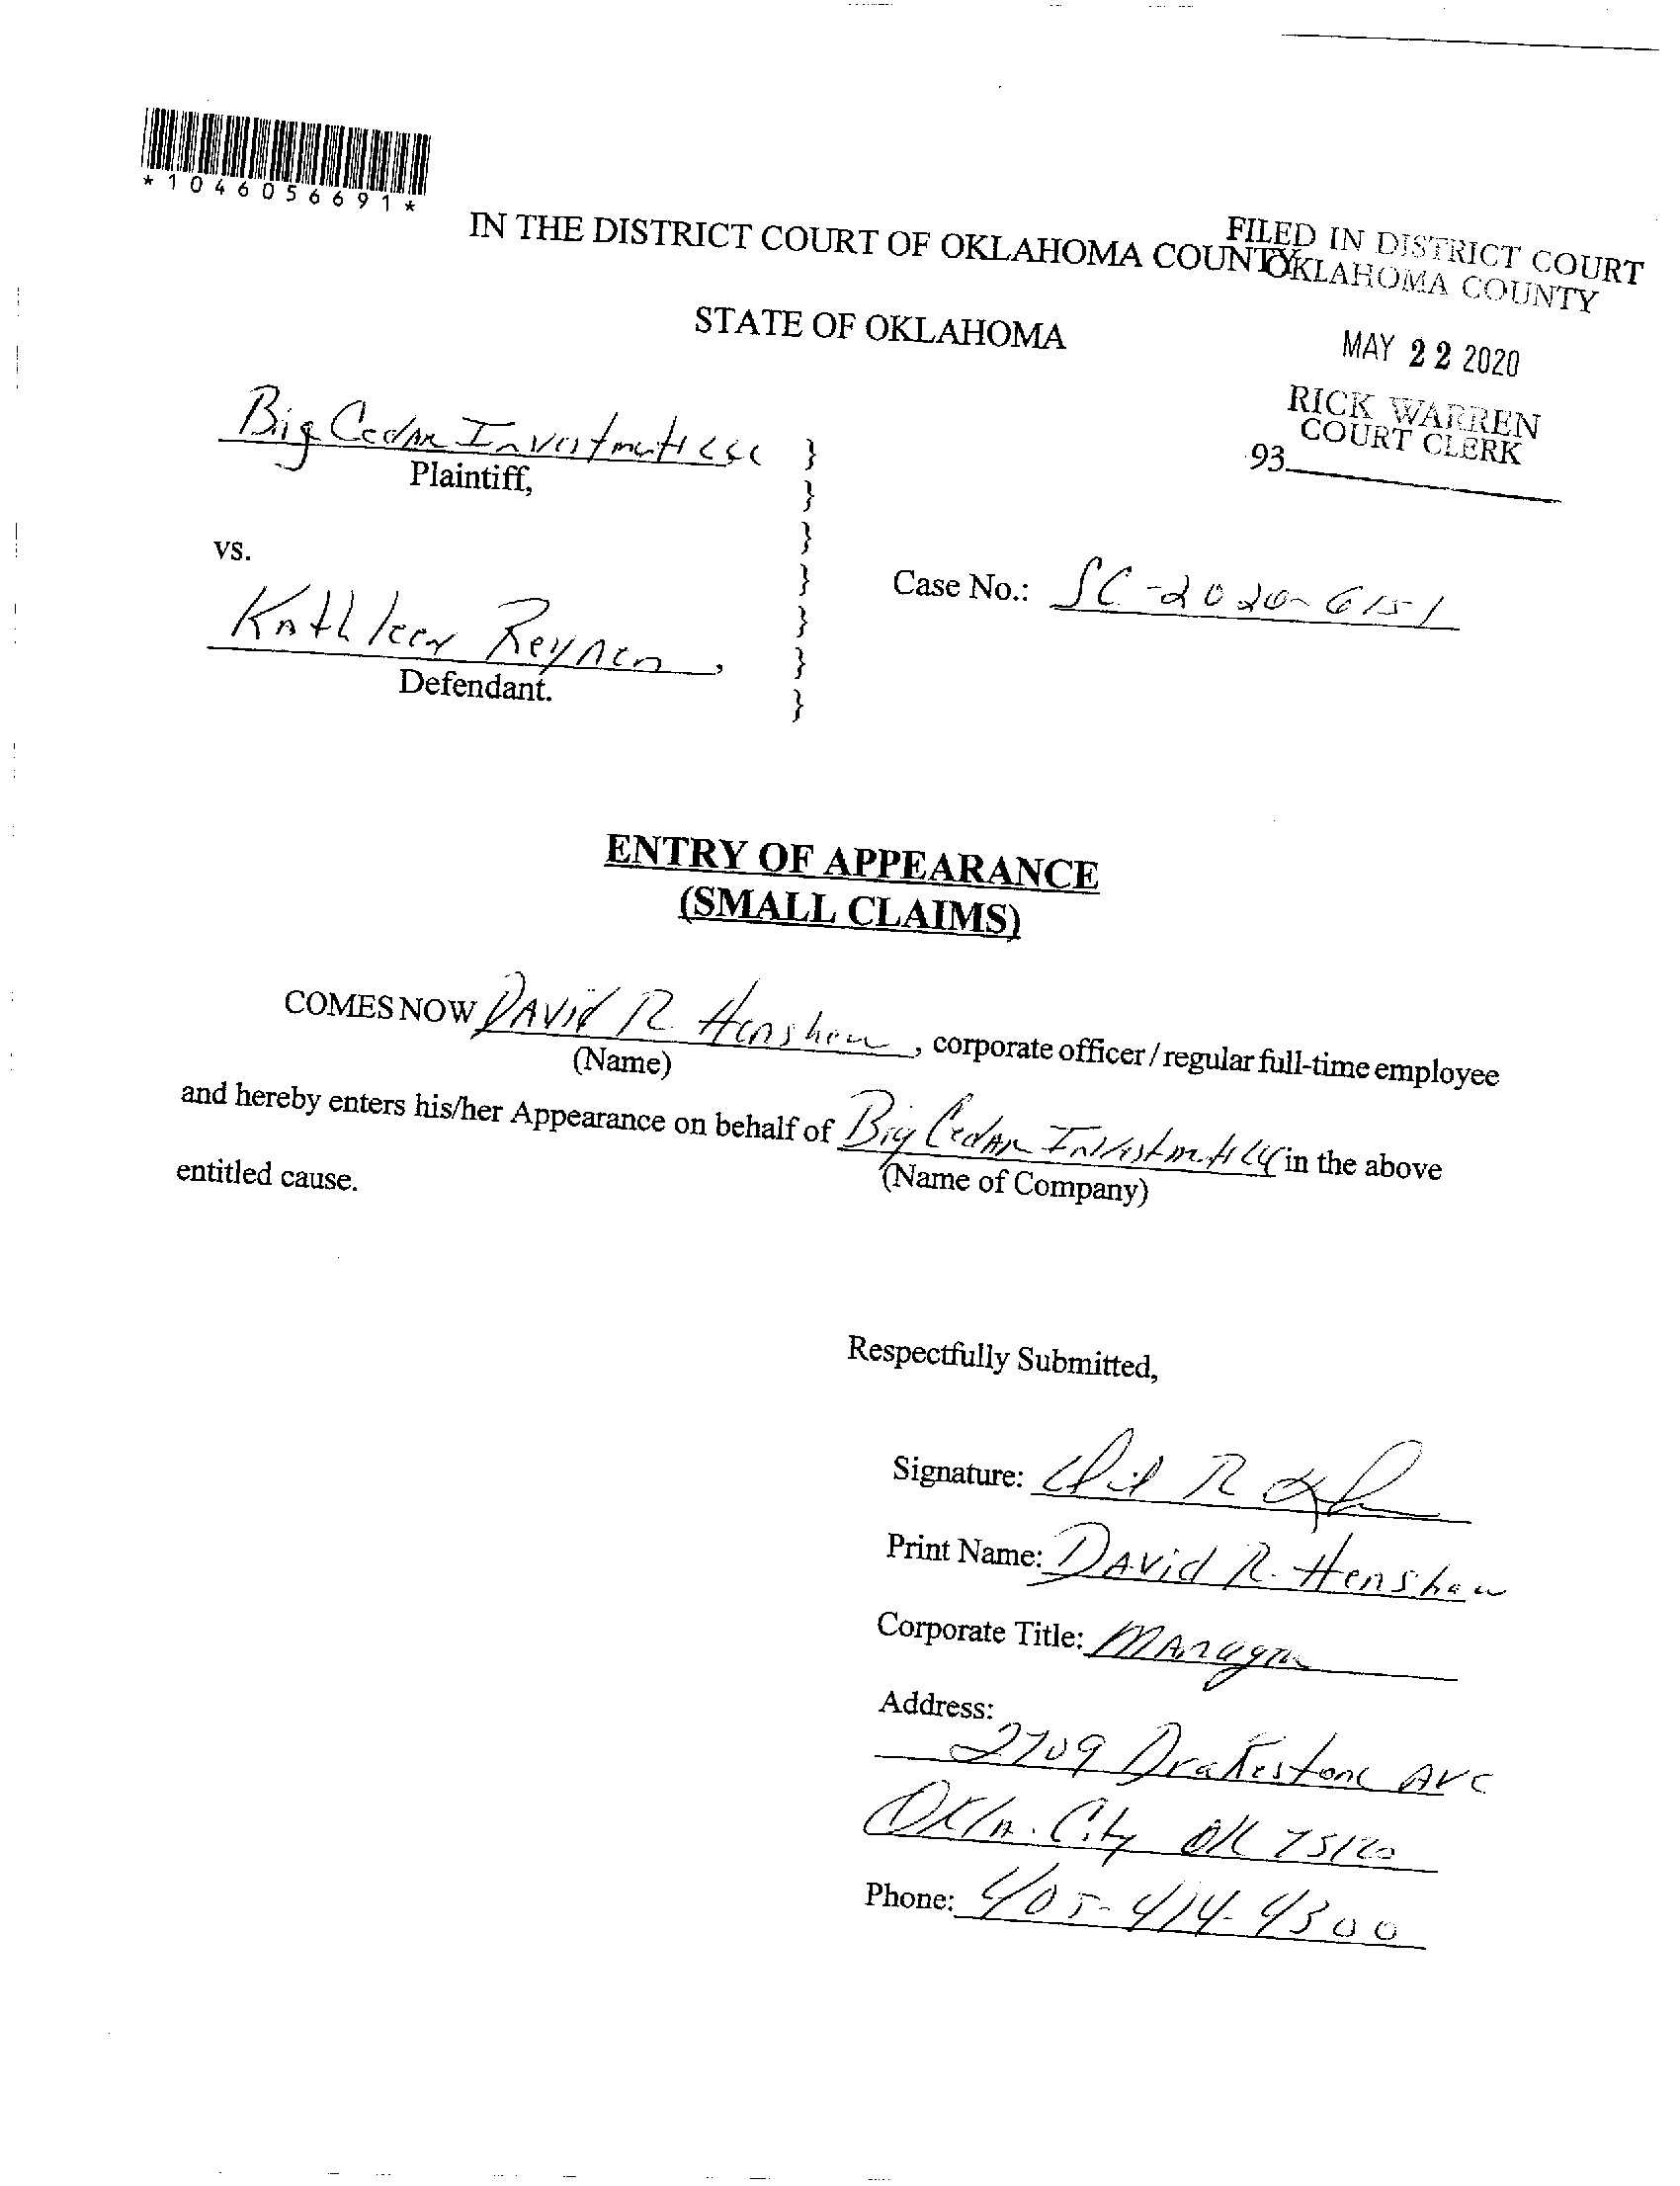 *1046056691*
IN THE DISTRICT COURT OF OKLAHOMA COUNTY
FILED IN DISTRICT COURT
OKLAHOMA COUNTY
STATE OF OKLAHOMA
MAY 22 2020
RICK WARREN
COURT CLERK
93
Big Cedar Investment LLC }
Plaintiff, }
}
vs. }
Case No.: SC-2020-6151
Kathleen Reynen, }
Defendant. }
}
ENTRY OF APPEARANCE
(SMALL CLAIMS)
COMES NOW David R. Henshaw, corporate officer / regular full-time employee
(Name)
and hereby enters his/her Appearance on behalf of Big Cedar Investment LLC in the above
(Name of Company)
entitled cause.
Respectfully Submitted,
Signature:
Print Name: David R. Henshaw
Corporate Title: Manager
Address:
2709 Drakestone Ave
Okla. City OK 73120
Phone: 405-414-4300